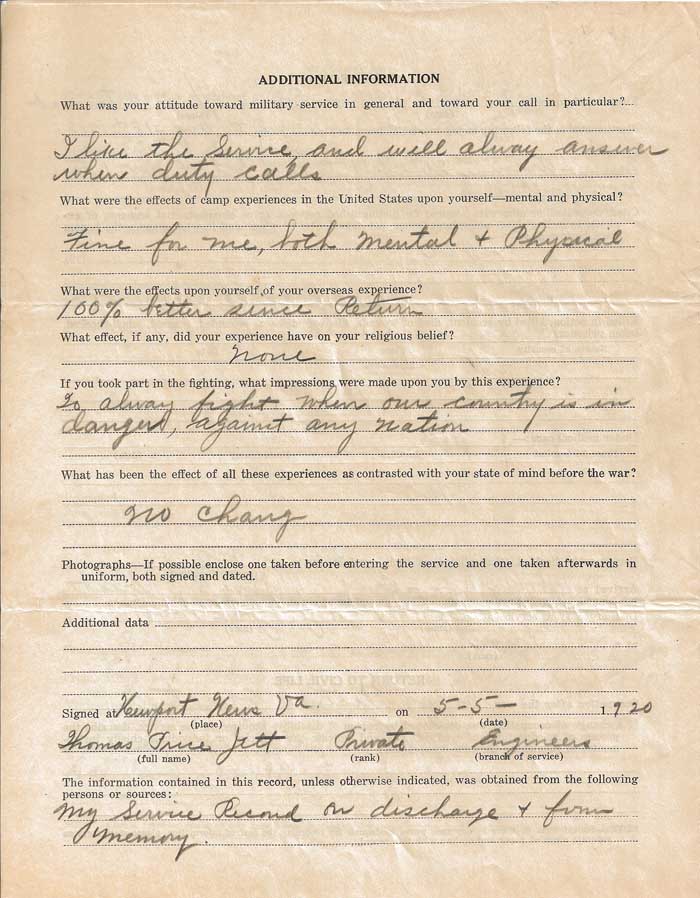 ADDITIONAL INFORMATION
What was your attitude toward military service in general and toward your call in particular?
I like the Service, and will alway answer
when duty calls
What were the effects of camp experiences in the United States upon yourself—mental and physical?
Fine for me, both Mental + Physical
What were the effects upon yourself of your overseas experience?
100% better since Return
What effect, if any, did your experience have on your religious belief?
none
If you took part in the fighting, what impressions were made upon you by this experience?
To alway fight when our country is in
danger, against any nation
What has been the effect of all these experiences as contrasted with your state of mind before the war?
no chang
Photographs—If possible enclose one taken before entering the service and one taken afterwards in
uniform, both signed and dated.
Additional data
Signed at Newport News Va. on 5-5- 1920
(place) (date)
Thomas Price Jett Private Engineers
(full name) (rank) (branch of service)
The information contained in this record, unless otherwise indicated, was obtained from the following
persons or sources:
My Service Record on discharge + from
Memory.